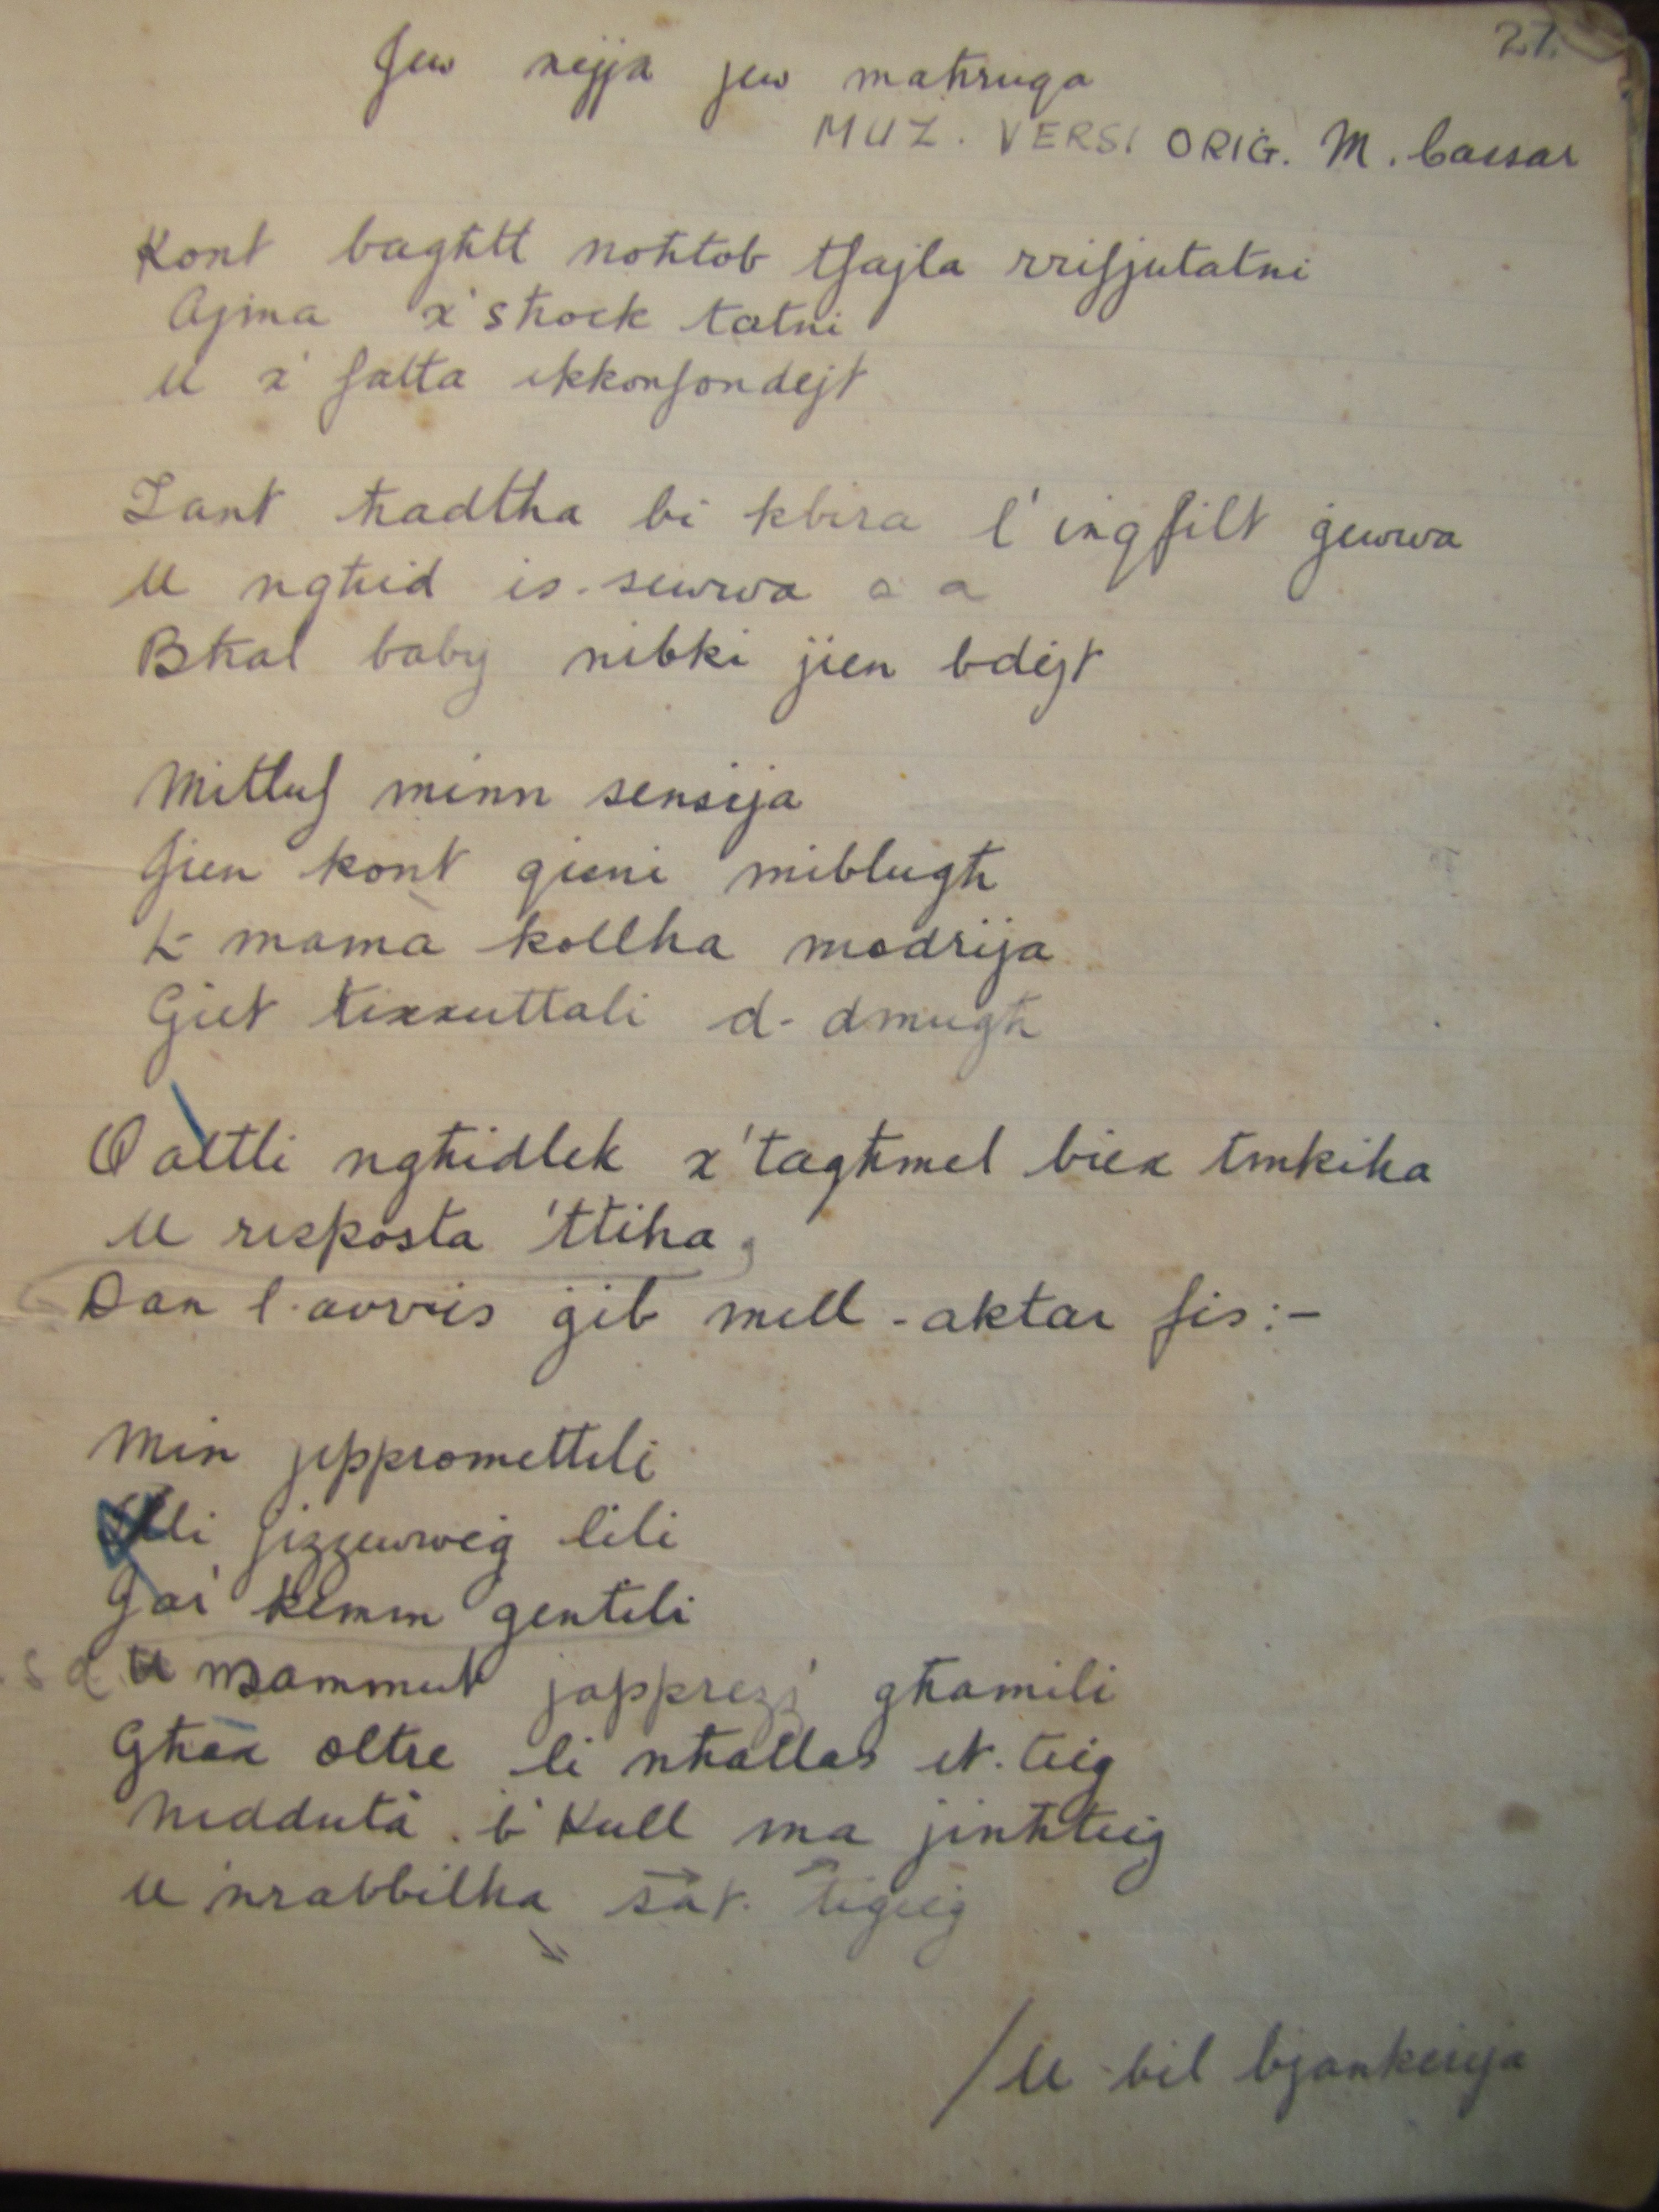 27.
Jew nejja jew maħruqa
MUZ. VERSI ORIĠ. M. Cassar
Kont bagħtt noħtob tfajla rrifjutatni
Ajma x'shock tatni
U x' falta ikkonfondejt
Tant ħadtha bi kbira l'inqfilt ġewwa
U ngħid is-sewwa a a
Bħal baby nibki jien bdejt
Mitluf minn sensija
Jien kont qieni miblugħ
L-mamà kollha modrija
Ġiet tixxuttali d-dmugħ
Qaltli ngħidlek x'tagħmel biex tinkiha
U risposta 'ttiha
Dan l-avvis ġib mill-aktar fis:-
Min jippromettili
Illi jizzewweġ lili
Jaf kemm gentili
U mammut japprezz' għamili
Għax oltre li nħallas it-tieġ
Nedduta b'kull ma jinħtieġ
U nrabbilha sat-tiġieġ
/U bil bjankerija